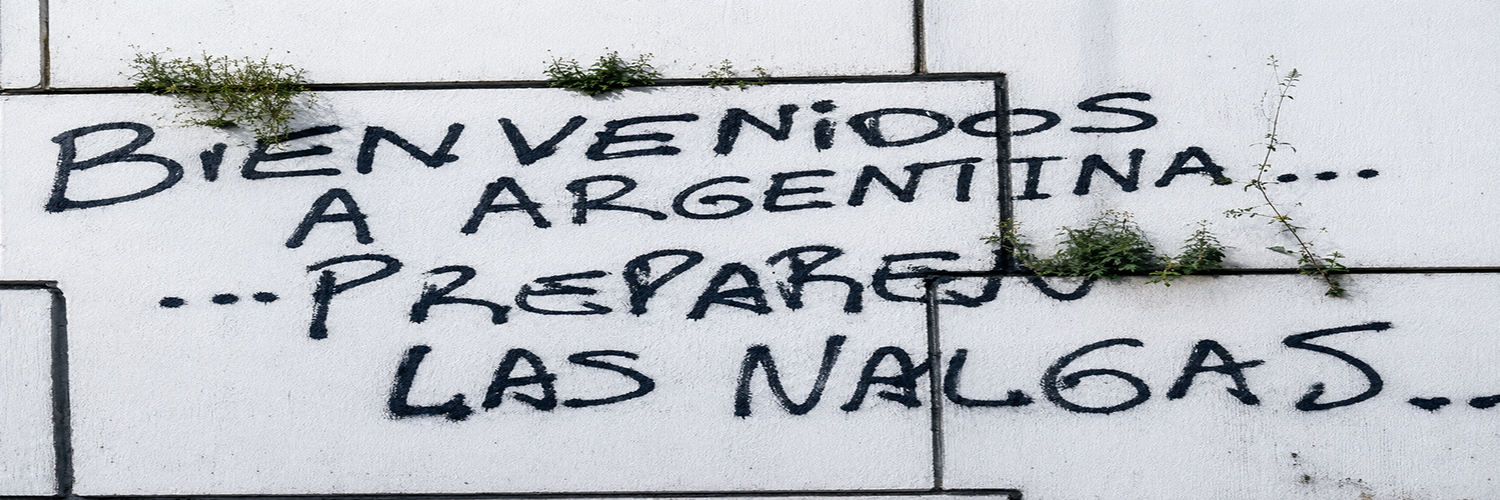 BiENVENiDOS
A ARGENTINA...
...PREPAREN
LAS NALGAS...